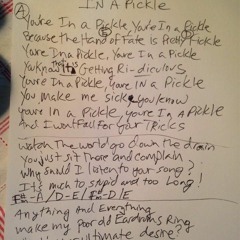 IN A PICKLE
A
You're In a Pickle, You're In a Pickle
Because the Hand of Fate is Pretty Fickle
You're In a Pickle, You're In a Pickle
You know It's Getting Ri-diculous
You're In a Pickle, You're IN a Pickle
You make me sick, you know
You're IN a Pickle, you're In A Pickle
And I wont Fall for your Tricks
watch The world go down the drain
You just sit There and complain
Why should I listen to your song?
It's much to stupid and too Long!
-A/D-E/ -D/E
Anything And Everything
make my Poor old Eardrums Ring
ultimate desire?